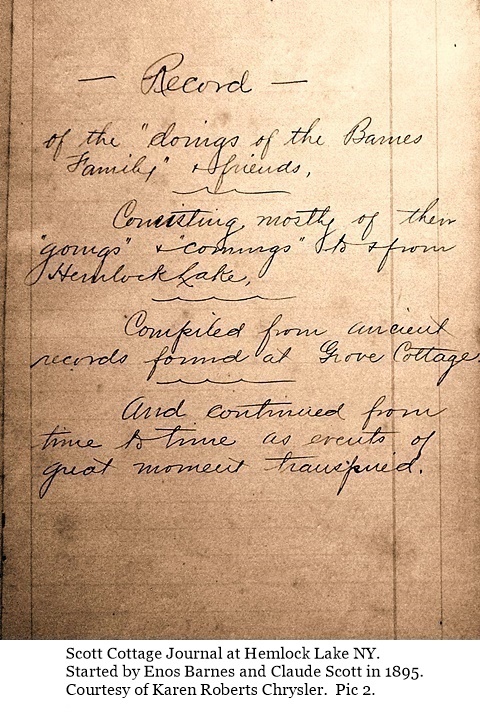 — Record —
of the "doings of the Barnes
Family" & friends,
Consisting mostly of their
"goings" & "comings" to & from
Hemlock Lake,
Compiled from ancient
records found at Grove Cottage.
And continued from
time to time as events of
great moment transpired.
Scott Cottage Journal at Hemlock Lake NY.
Started by Enos Barnes and Claude Scott in 1895.
Courtesy of Karen Roberts Chrysler.  Pic 2.